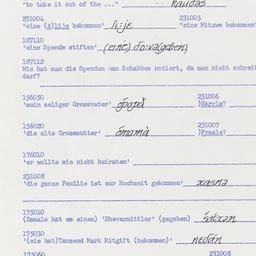 "to take it out of the ..." kaudas
231004 231005
"eine (A)liie bekommen" li:je "eine Mitzve bekommen"
187110
'eine Spende stiften' (einē) do:va(geben)
187112
Wie hat man die Spenden am Schabbes notiert, da man nicht schrei
darf?
156050 231006
'mein seliger Grossvater' ōpapā )Harrle?
156020 231007
'die alte Grossmutter' ōmamā )Fraale?
176010
'er wollte sie nicht heiraten'
231008
'die ganze Familie ist zur Hochzeit gekommen' xasnə
175010
(Damals hat es einen) 'Ehevermittler' (gegeben) šatxən
175030
'(sie hat)Tausend Mark Mitgift (bekommen)' nedān
175060 231008